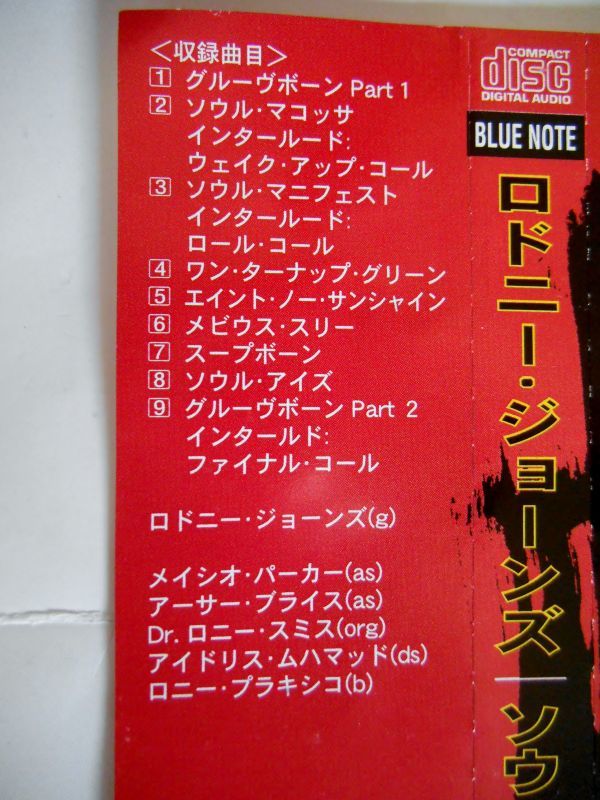 <収録曲目>
1 グルーヴボーン Part 1
2 ソウル・マコッサ
インタールード:
ウェイク・アップ・コール
3 ソウル・マニフェスト
インタールード:
ロール・コール
4 ワン・ターナップ・グリーン
5 エイント・ノー・サンシャイン
6 メビウス・スリー
7 スープボーン
8 ソウル・アイズ
9 グルーヴボーン Part 2
インタールド:
ファイナル・コール
ロドニー・ジョーンズ(g)
メイシオ・パーカー(as)
アーサー・ブライス(as)
Dr. ロニー・スミス(org)
アイドリス・ムハマッド(ds)
ロニー・プラキシコ(b)
COMPACT
disc
DIGITAL AUDIO
BLUE NOTE
ロドニー・ジョーンズ｜ソウ